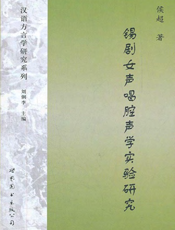 侯超 著
锡剧女声唱腔声学实验研究
汉语方言学研究系列
刘俐李 主编
世界图书出版公司